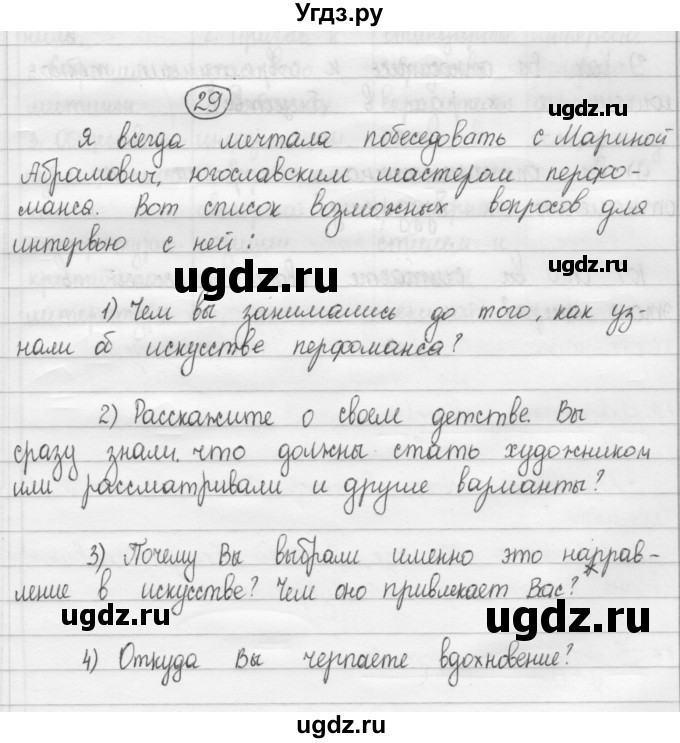 Угдз.ру
29
Я всегда мечтала побеседовать с Мариной
Абрамович, югославским мастером перфо-
манса. Вот список возможных вопросов для
интервью с ней:
1) Чем вы занимались до того, как уз-
нали об искусстве перфоманса?
2) Расскажите о своем детстве. Вы
сразу знали, что должны стать художником
или рассматривали и другие варианты?
3) Почему Вы выбрали именно это направ-
ление в искусстве? Чем оно привлекает Вас?
4) Откуда Вы черпаете вдохновение?
ugdz.ru
ugdz.ru
ugdz.ru
ugdz.ru
ugdz.ru
ugdz.ru
ugdz.ru
ugdz.ru